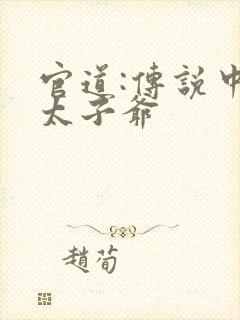 官道:傳說中
太子爺
趙荀